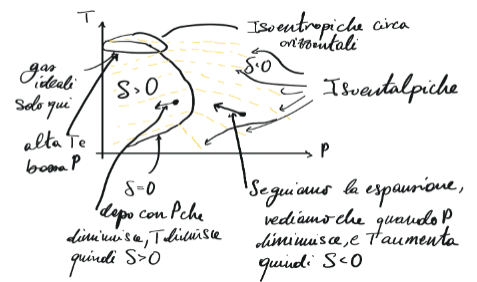 T
Isoentropiche circa
orizzontali
gas
ideali
solo qui
δ>0
δ<0
Isoentalpiche
alta T e
bassa P
P
δ=0
dopo con P che
diminuisce, T diminuisce
quindi δ>0
Seguiamo la espansione,
vediamo che quando P
diminuisce, e T aumenta
quindi δ<0